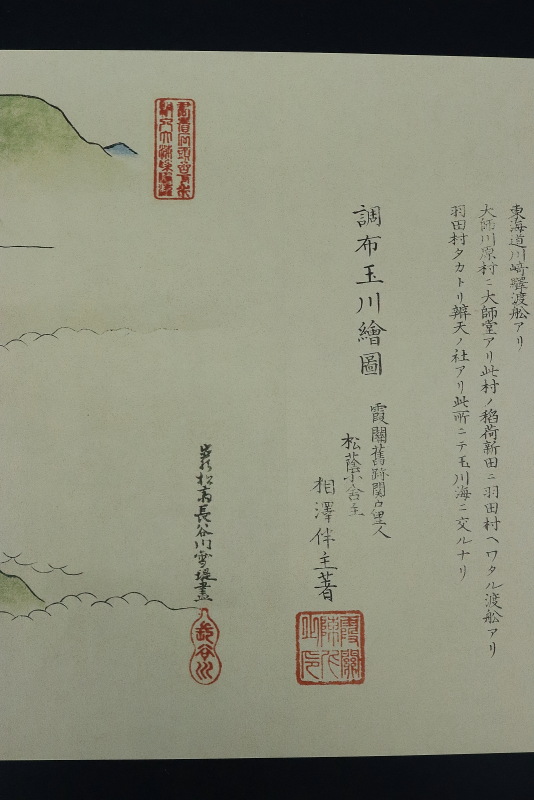 東海道川﨑驛渡舩アリ
大師川原村ニ大師堂アリ此村ノ稻荷新田ニ羽田村ヘワタル渡舩アリ
羽田村タカトリ辨天ノ社アリ此所ニテ玉川海ニ交ルナリ
調布玉川繪圖
霞關舊跡關戸里人
松蔭小舎主
相澤伴主著
霞關
陳人
之印
松斎長谷川雪堤畫
長谷川